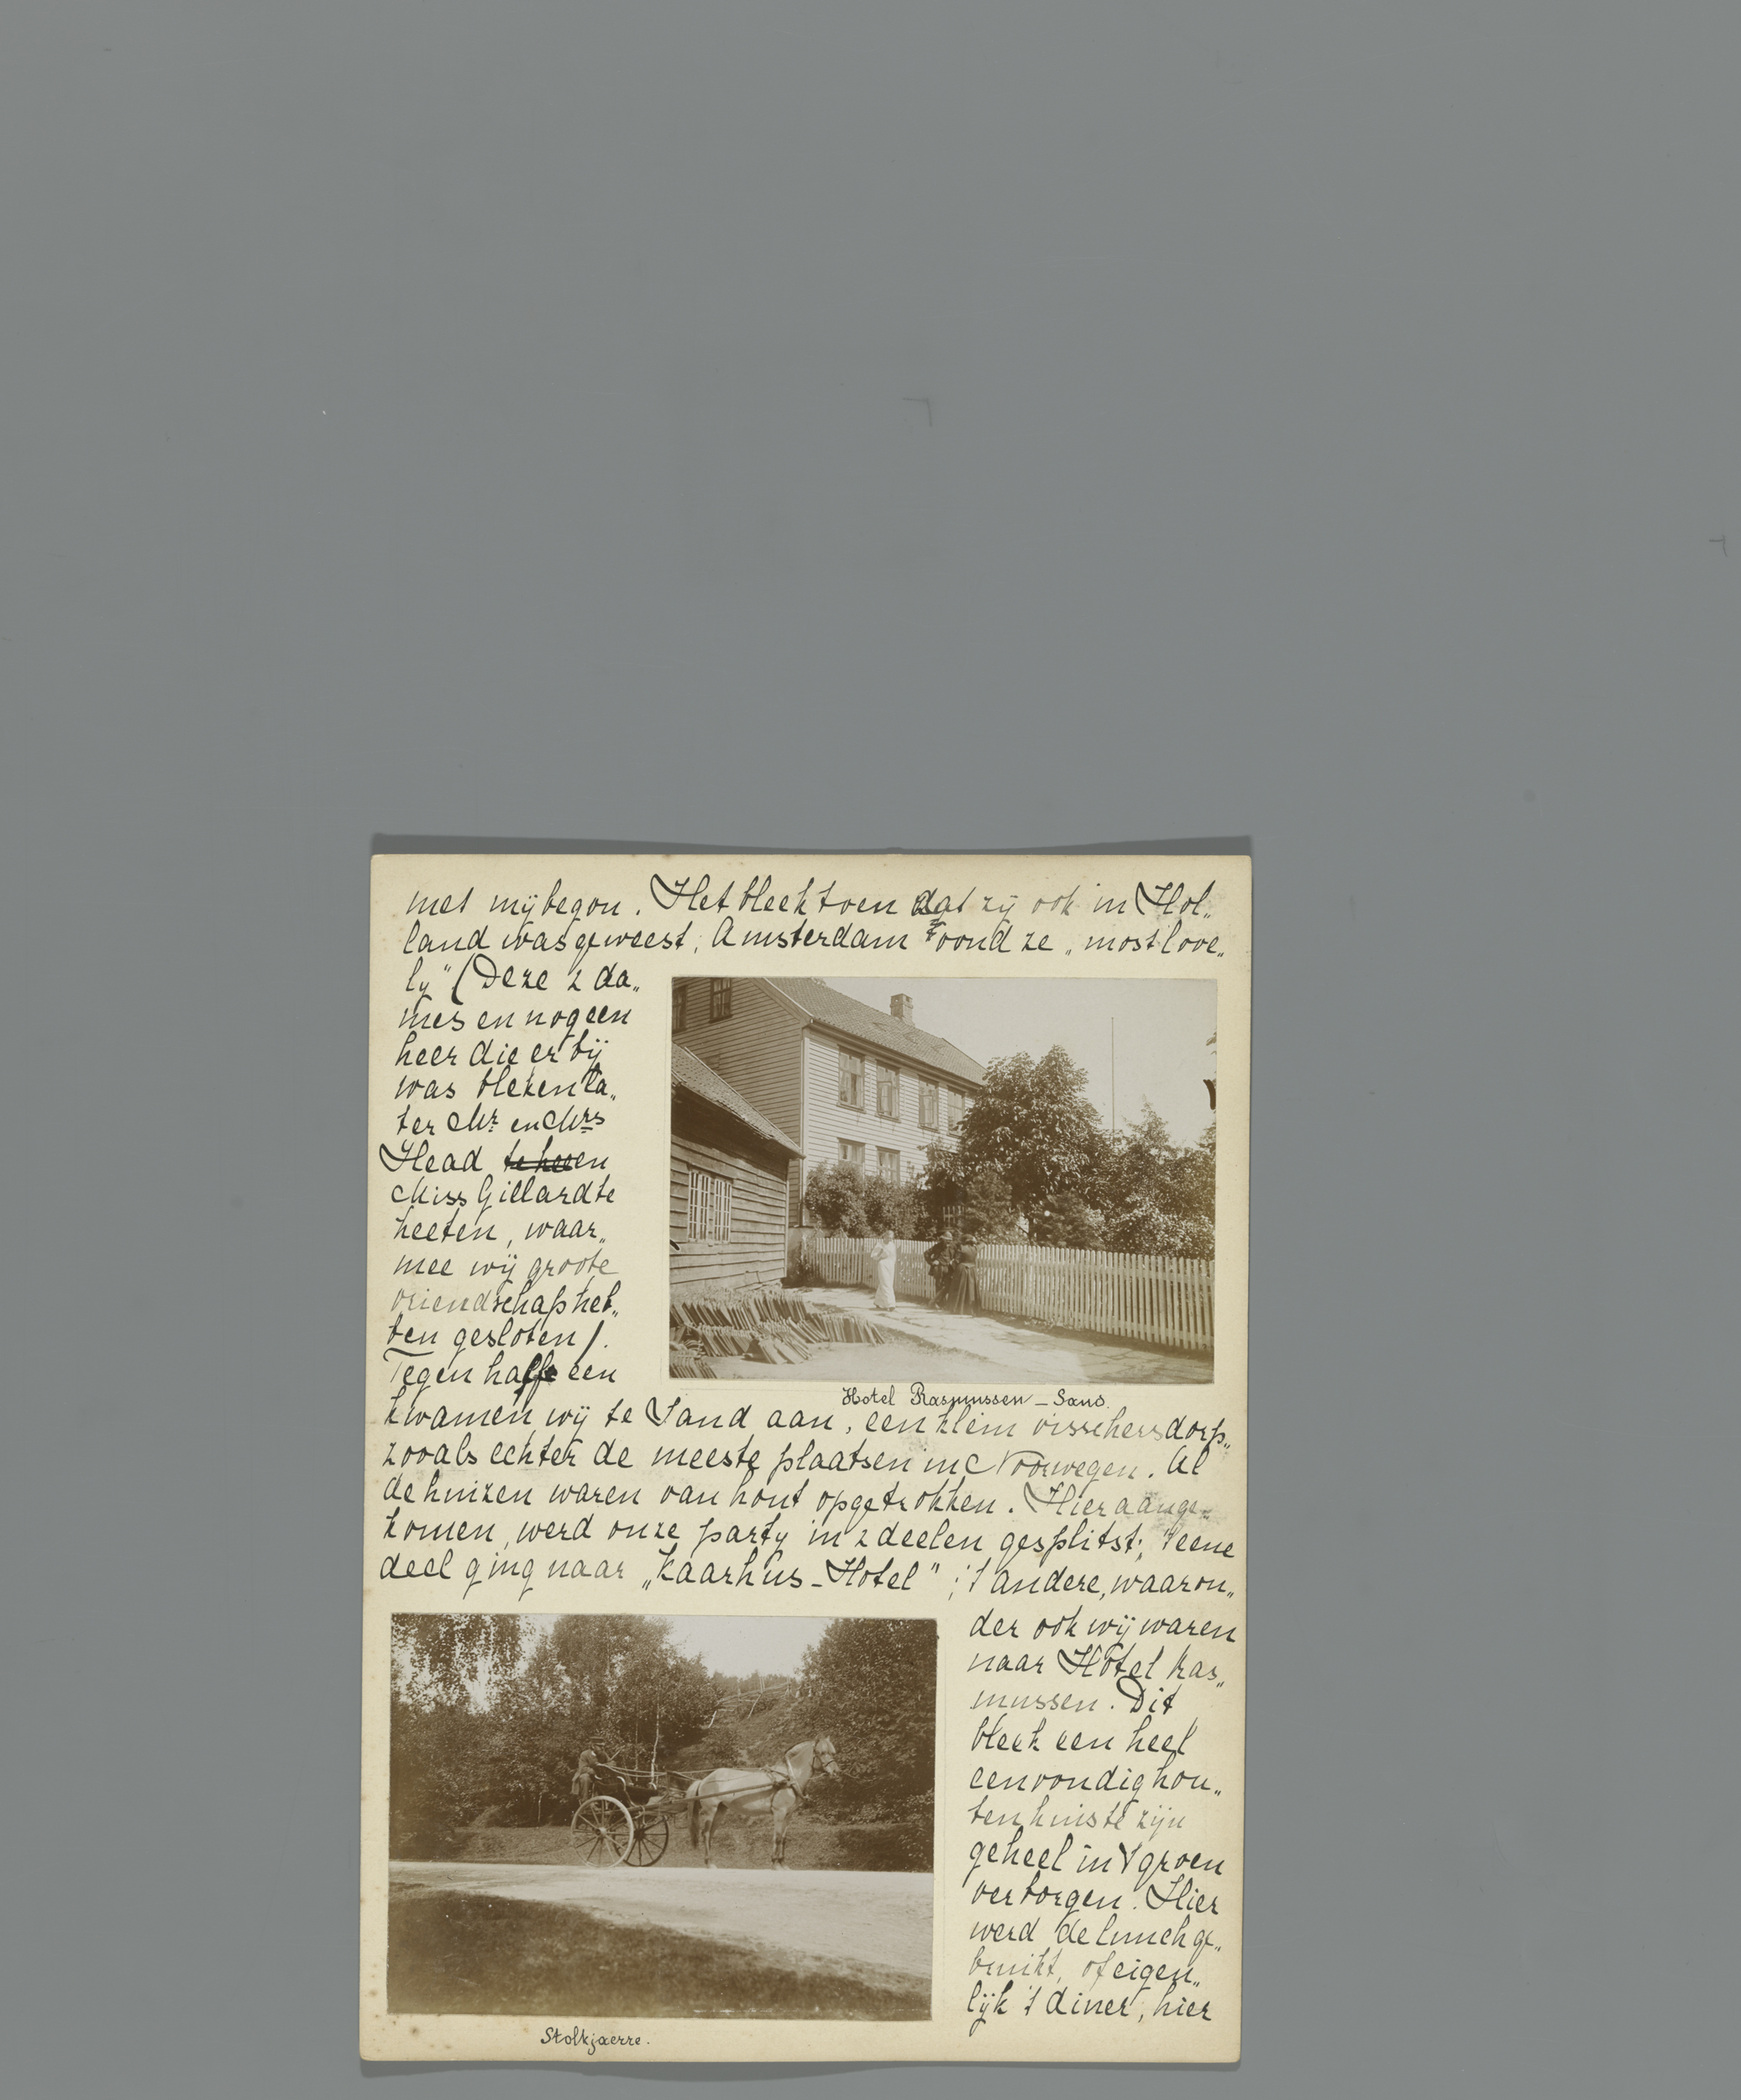 met mij begon. Het bleek toen dat zij ook in Hol„
land was geweest; Amsterdam vond ze „most love„
ly" (Deze 2 da„
mes en nog een
heer die er bij
was bleken la„
ter Mr en Mrs
Head te heeen
Miss Gillard te
heeten, waar„
mee wij groote
vriendschap heb„
ben gesloten).
Tegen half een
kwamen wij te Sand aan, een klein visschersdorp„
zooals echter de meeste plaatsen in Noorwegen. Al
de huizen waren van hout opgetrokken. Hier aange„
komen, werd onze party in 2 deelen gesplitst; 't eene
deel ging naar „Kaarhus-Hotel"; 't andere, waaron„
der ook wij waren
naar Hôtel Ras„
mussen. Dit
bleek een heel
eenvoudig hou„
ten huis te zijn
geheel in 't groen
verborgen. Hier
werd de lunch ge„
bruikt, of eigen„
lijk 't diner, hier
Hotel Rasmussen – Sand.
Stolkjaerre.